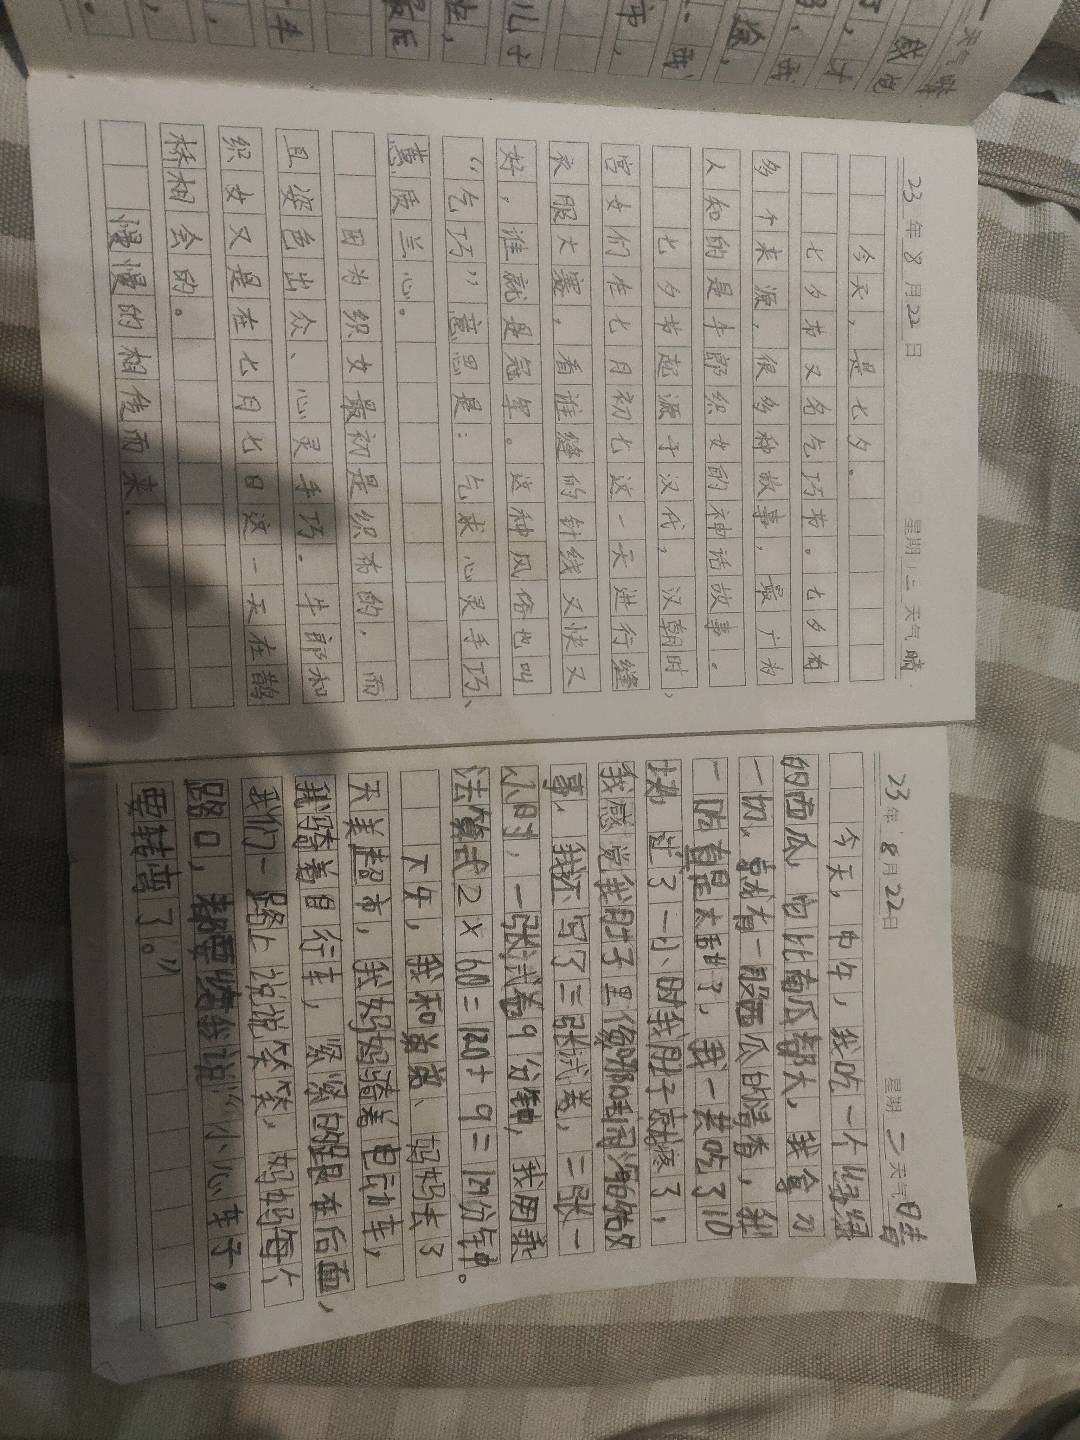 23年8月22日 星期二 天气晴
今天,是七夕。
七夕节又名乞巧节。七夕有
多个来源,很多种故事,最广为
人知的是牛郎织女的神话故事。
七夕节起源于汉代,汉朝时,
宫女们在七月初七这一天进行缝
衣服大赛,看谁缝的针线又快又
好,谁就是冠军。这种风俗也叫
“乞巧”意思是:乞求心灵手巧、
蕙质兰心。
因为织女最初是织布的,而
且姿色出众、心灵手巧。牛郎和
织女又是在七月七日这一天在鹊
桥相会的。
慢慢的相传而来.
23年8月22日 星期二天气晴
今天,中午,我吃一个
的西瓜,它比南瓜都大,我拿刀
一切,就有一股西瓜的香,
一吃首是太甜了,我一共吃了10
块,过了一小时我肚子就疼了,
我感觉我肚子里像
事,我还写了三张试卷,二张一
小时,一张试卷9分钟,我用乘
法算式2×60=120+9=129分钟。
下午,我和爸爸、妈妈去了
天美超市,我妈妈骑着电动车,
我骑着自行车,紧紧的跟在后面,
我们一路上说说笑笑,妈妈每个
路口,都要说“小心车子,
要转弯了。”